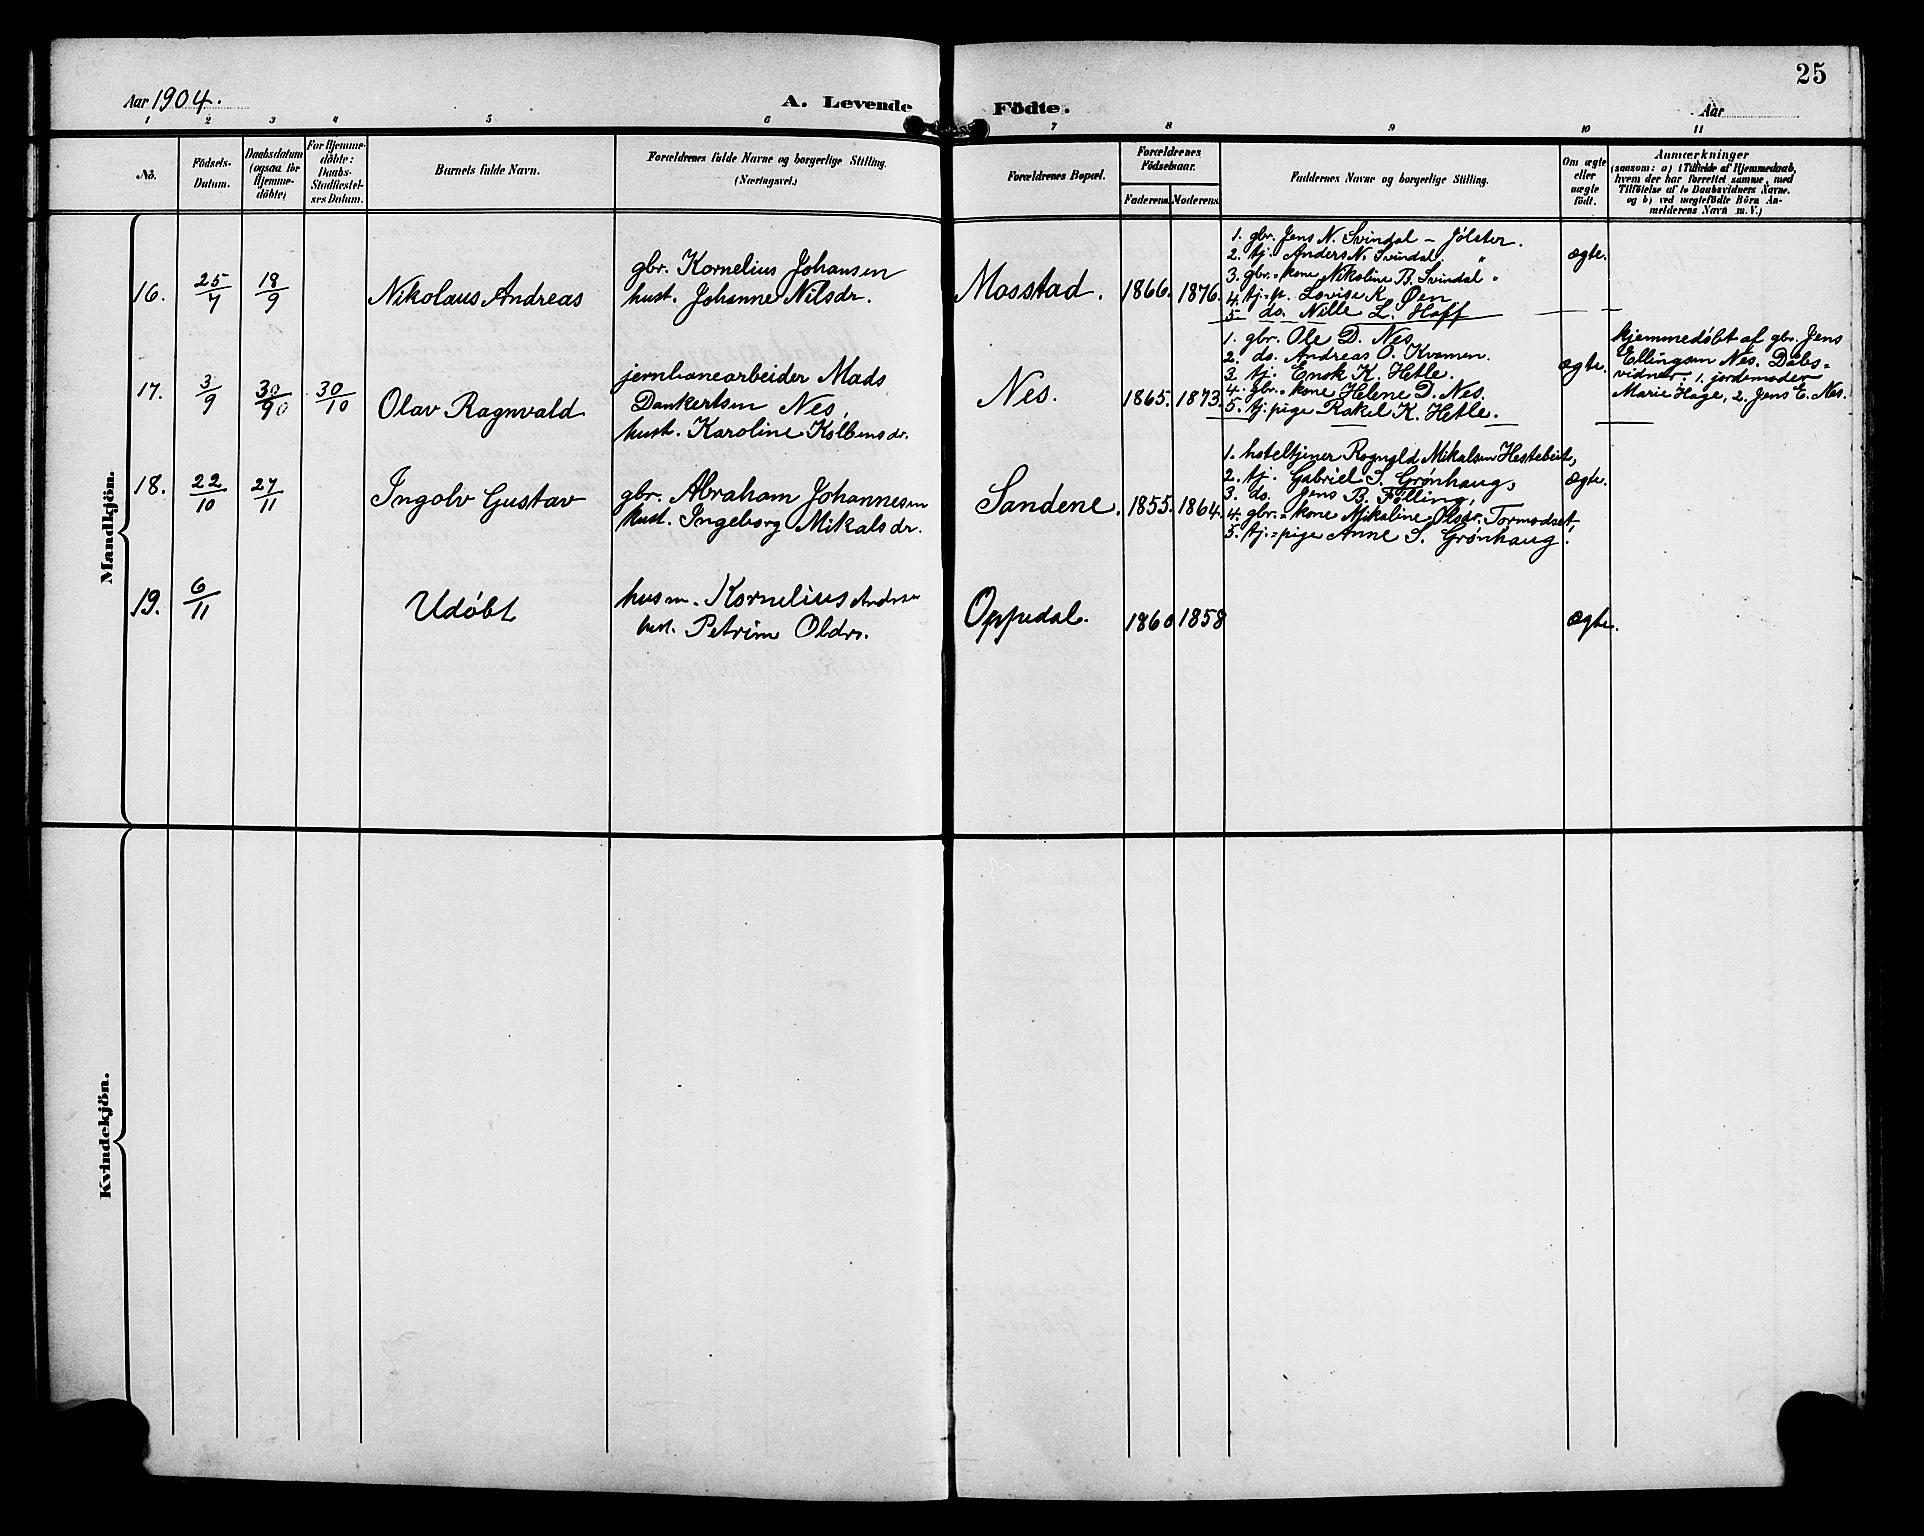 25
Aar 1904.
A. Levende Födte.
Aar
1 2 3 4 5 6 7 8 9 10 11
No.
Födsels-Datum.
Daabsdatum (ogsaa for Hjemme-döbte)
For Hjemme-döbte: Daabs-Stadfæstel-ses Datum.
Barnets fulde Navn.
Forældrenes fulde Navne og borgerlige Stilling.
(Næringsvei.)
Forældrenes Bopæl.
Forældrenes Födselsaar.
Faderens. Moderens.
Faddernes Navne og borgerlige Stilling.
Om ægte eller uægte födt.
Anmærkninger
(saasom: a) i Tilfælde af Hjemmedaab,
hvem der har forrettet samme, med
Tilföielse af to Daabsvidners Navne.
og b) ved uægtefödte Börn An-
melderens Navn m. V.)
Mandkjön.
16. 25/7 18/9 Nikolaus Andreas
gbr. Kornelius Johansen
hust. Johanne Nilsdr.
Mosstad. 1866. 1876.
1. gbr. Jens N. Svindal - Jølster.
2. tj. Anders N. Svindal "
3. gbr.-kone Nikoline B. Svindal "
4. tj.-p. Lovise K. Øen
5. do. Nille L. Hoff
ægte.
17. 3/9 30/90 30/10 Olav Ragnvald
jernbanearbeider Mads
Dankertsen Nes,
hust. Karoline Kolbensdr.
Nes. 1865. 1873.
1. gbr. Ole D. Nes
2. do. Andreas O. Kvamen.
3. tj. Enok K. Hetle.
4. gbr.-kone Helene D. Nes.
5. tj. pige Rakel K. Hetle.
ægte.
hjemmedøbt af gbr. Jens
Ellingsen Nes. Dåbs-
vidner: 1. jordemoder
Marie Hage, 2. Jens E. Nes.
18. 22/10 27/11 Ingolv Gustav
gbr. Abraham Johannesen
hust. Ingeborg Mikalsdr.
Sandene. 1855. 1864.
1. hoteltjener Rognald Mikalsen Hestebeit,
2. tj. Gabriel S. Grønhaug,
3. do. Jens B. Følling,
4. gbr.-kone Mikaline Olsdr. Tormodset,
5. tj.-pige Anne S. Grønhaug.
ægte.
19. 6/11 Udøbt
husm. Kornelius Andersen
hust. Petrine
Oppedal. 1860 1858
ægte.
Kvindekjön.